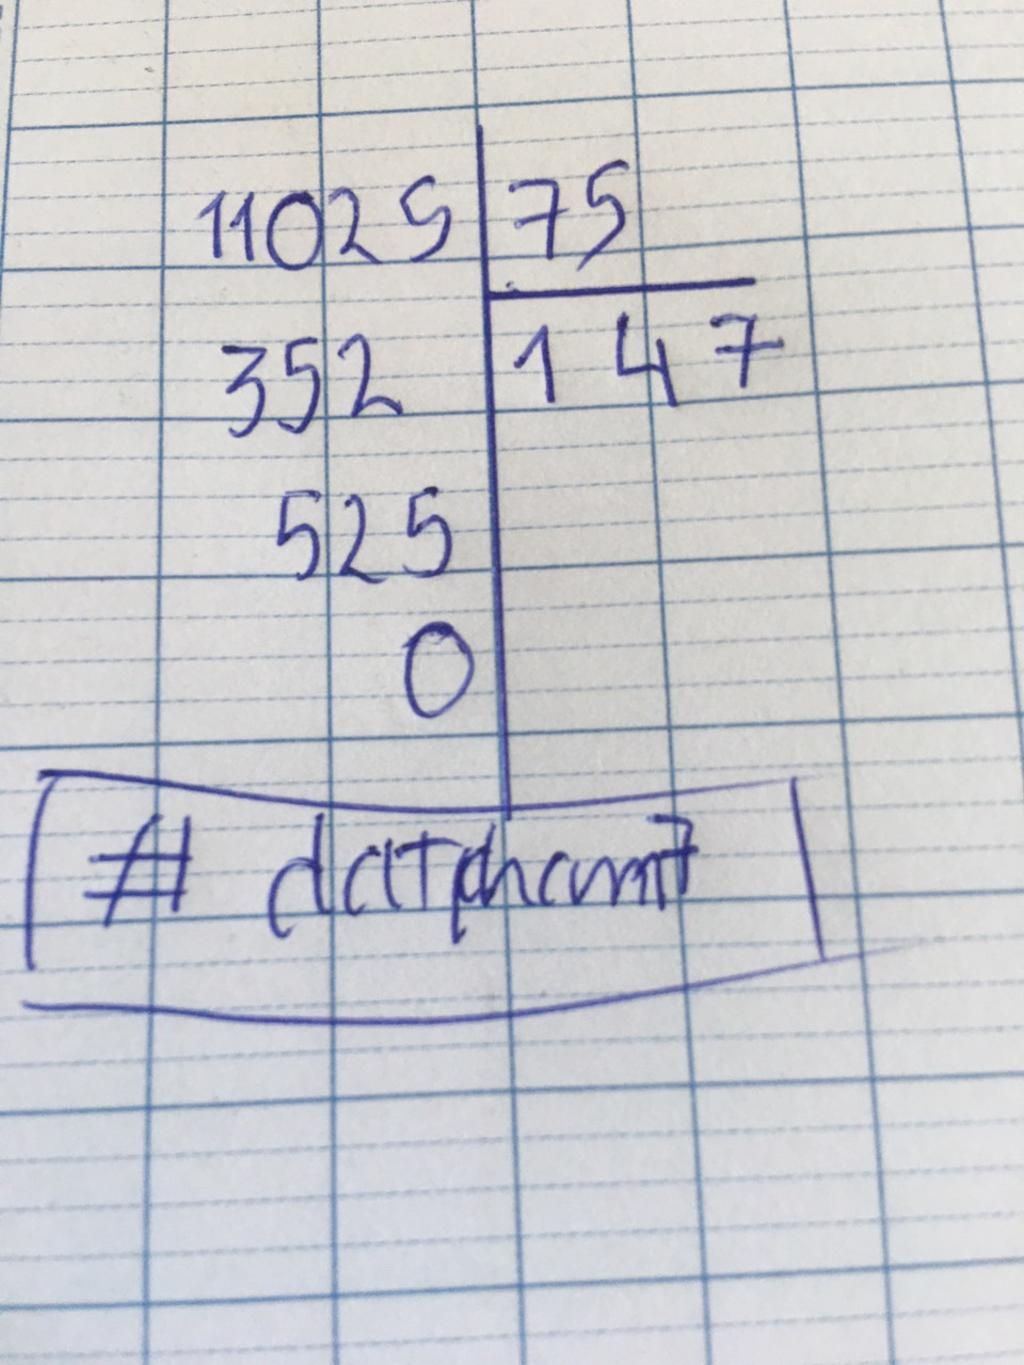 11025 75
352 147
525
0
# datpham7